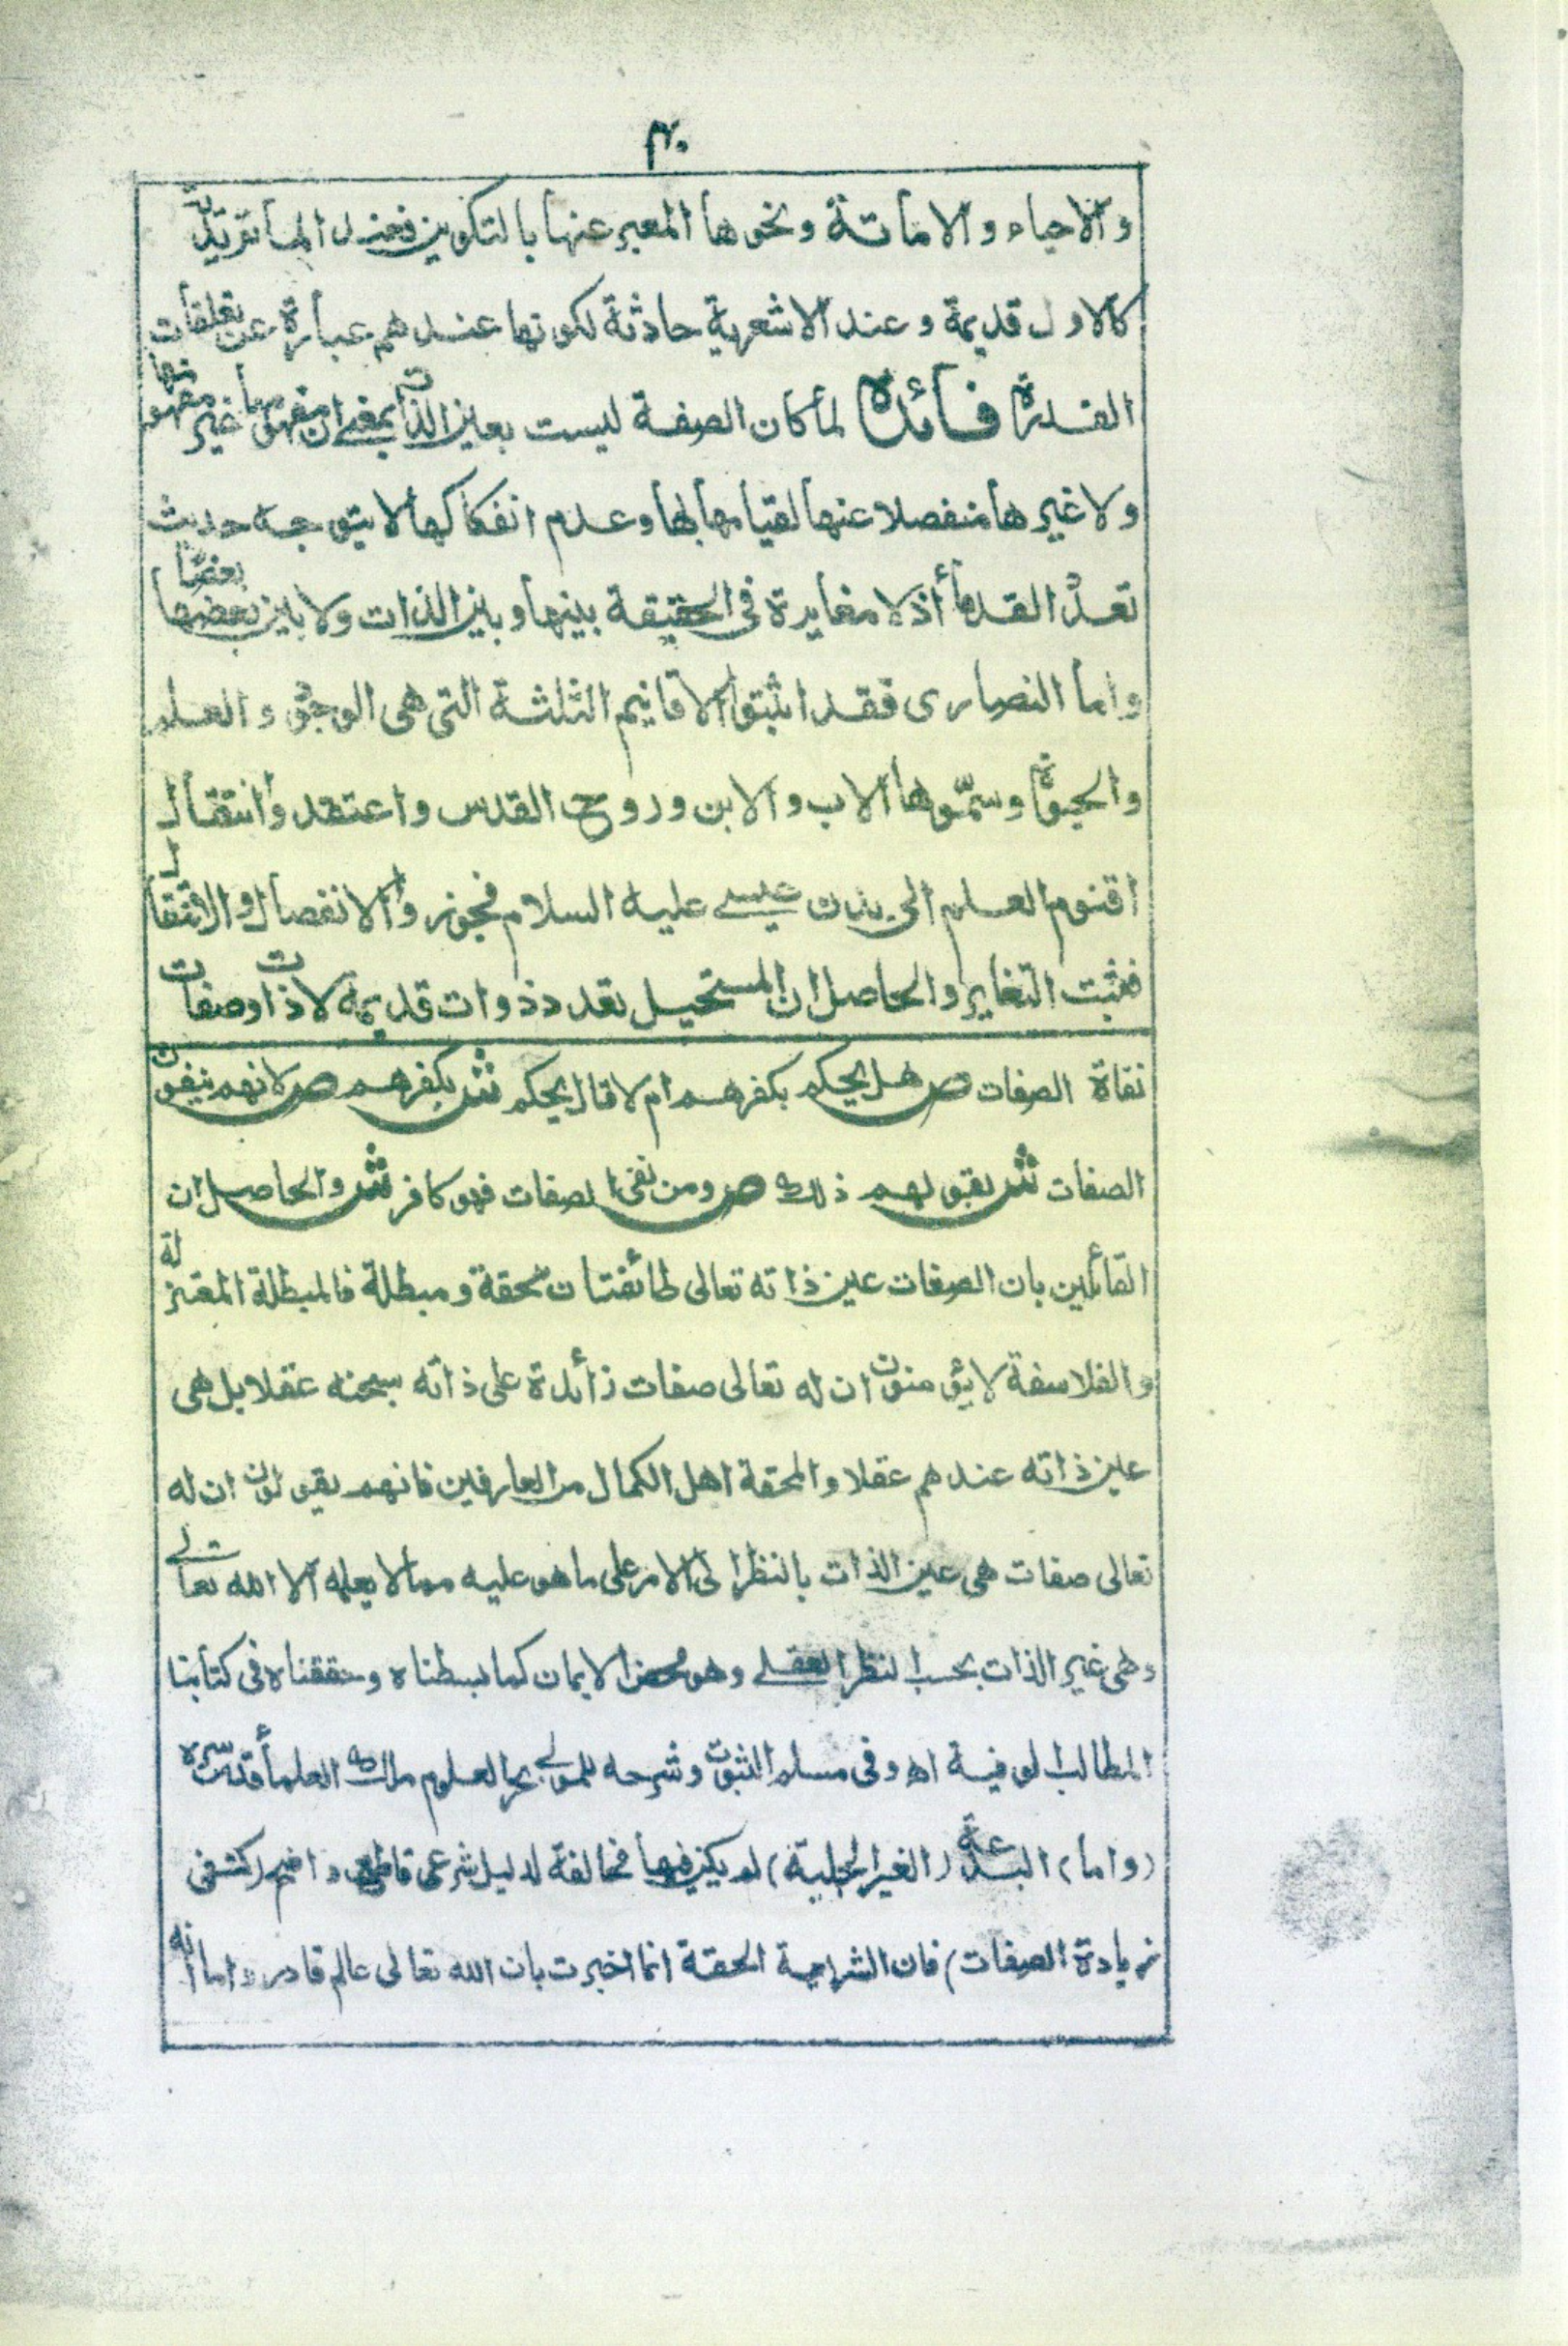 ٣٠
والاحياء والاماتة ونحوها المعبر عنها بالتكوين فعند الماتريدية
كالاول قديمة وعند الاشعرية حادثة لكونها عندهم عبارة عن تعلقات
القدرة فائدة لما كان الصفة ليست بعين الذات بمعنى ان مفهومها غير مفهومها
ولا غيرها منفصلا عنها لقيامها بها وعدم انفكاكها لا يتوجه حديث
تعدد القدماء أذ لا مغايرة في الحقيقة بينها وبين الذات ولا بين بعضها بعضا
واما النصارى فقد اثبتوا الاقانيم الثلثة التى هى الوجود والعلم
والحيوة وسمّوها الاب والابن وروح القدس واعتقدوا انتقال
اقنوم العلم الى بدن عيسى عليه السلام فجوزوا الانفصال والانتقال
فثبت التغاير والحاصل ان المستحيل تعدد ذوات قديمة لا ذات وصفات
نفاة الصفات ص هل يحكم بكفرهم ام لا قال يحكم ش بكفرهم ص لانهم ينفون
الصفات ش بقولهم ذلك ص ومن نفى الصفات فهو كافر ش والحاصل ان
القائلين بان الصفات عين ذاته تعالى طائفتان محقة ومبطلة فالمبطلة المعتزلة
والفلاسفة لا يؤمنون ان له تعالى صفات زائدة على ذاته سبحنه عقلا بل هى
عين ذاته عندهم عقلا والمحقة اهل الكمال من العارفين فانهم يقولون ان له
تعالى صفات هى عين الذات بالنظر الى الامر على ما هو عليه مما لا يعلمه الا الله تعالى
وهى غير الذات بحسب النظر العقلى وهو محض الايمان كما بسطناه وحققناه فى كتابنا
المطالب الوفية اه وفى مسلم الثبوت وشرحه للمولى بحر العلوم ملك العلماء قدس سره
(واما) البدعة (الغير الجلية) لم يكن فيها مخالفة لدليل شرعى قاطع واضح (كنفى
زيادة الصفات) فان الشريعة الحقة انما اخبرت بان الله تعالى عالم قادر واما انه